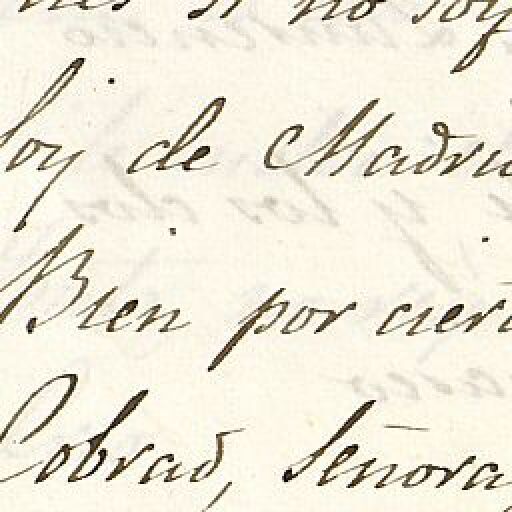 si no soy
soy de Madri
Bien por ciert
Cobrad, Señora,